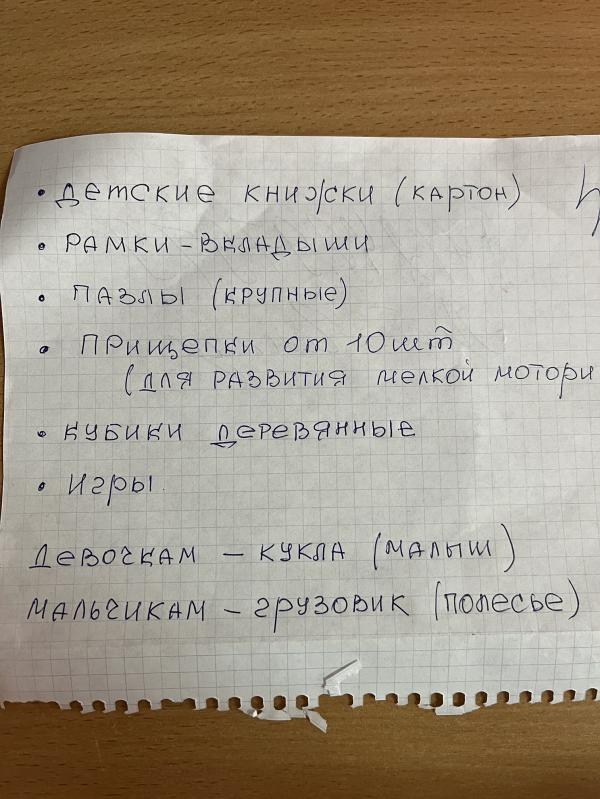 • Детские книжки (картон)
• Рамки-вкладыши
• Пазлы (крупные)
• Прищепки от 10 шт
(для развития мелкой мотори
• Кубики деревянные
• Игры
Девочкам – кукла (малыш)
Мальчикам – грузовик (полесье)